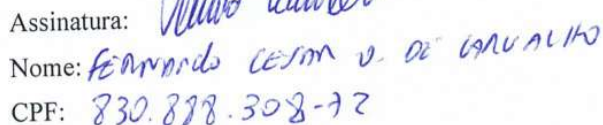 Assinatura:
Nome: FERNANDO CESAR V. DE CARVALHO
CPF: 830.888.308-72